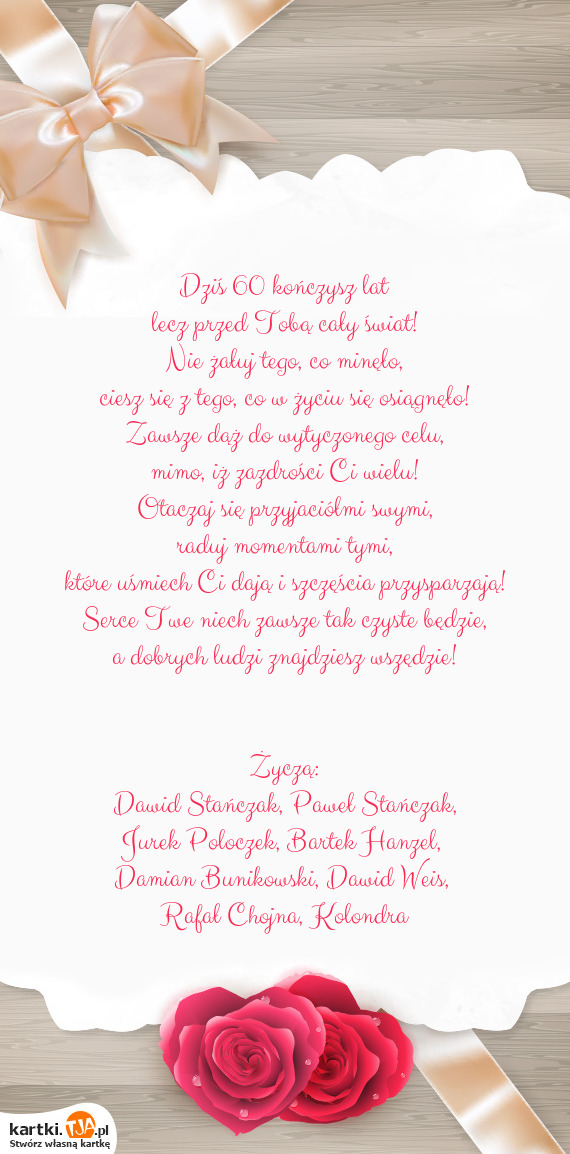 Dziś 60 kończysz lat
lecz przed Tobą cały świat!
Nie żałuj tego, co minęło,
ciesz się z tego, co w życiu się osiągnęło!
Zawsze dąż do wytyczonego celu,
mimo, iż zazdrości Ci wielu!
Otaczaj się przyjaciółmi swymi,
raduj momentami tymi,
które uśmiech Ci dają i szczęścia przysparzają!
Serce Twe niech zawsze tak czyste będzie,
a dobrych ludzi znajdziesz wszędzie!
Życzą:
Dawid Stańczak, Paweł Stańczak,
Jurek Poloczek, Bartek Hanzel,
Damian Bunikowski, Dawid Weis,
Rafał Chojna, Kolondra
kartki.TJA.pl
Stwórz własną kartkę